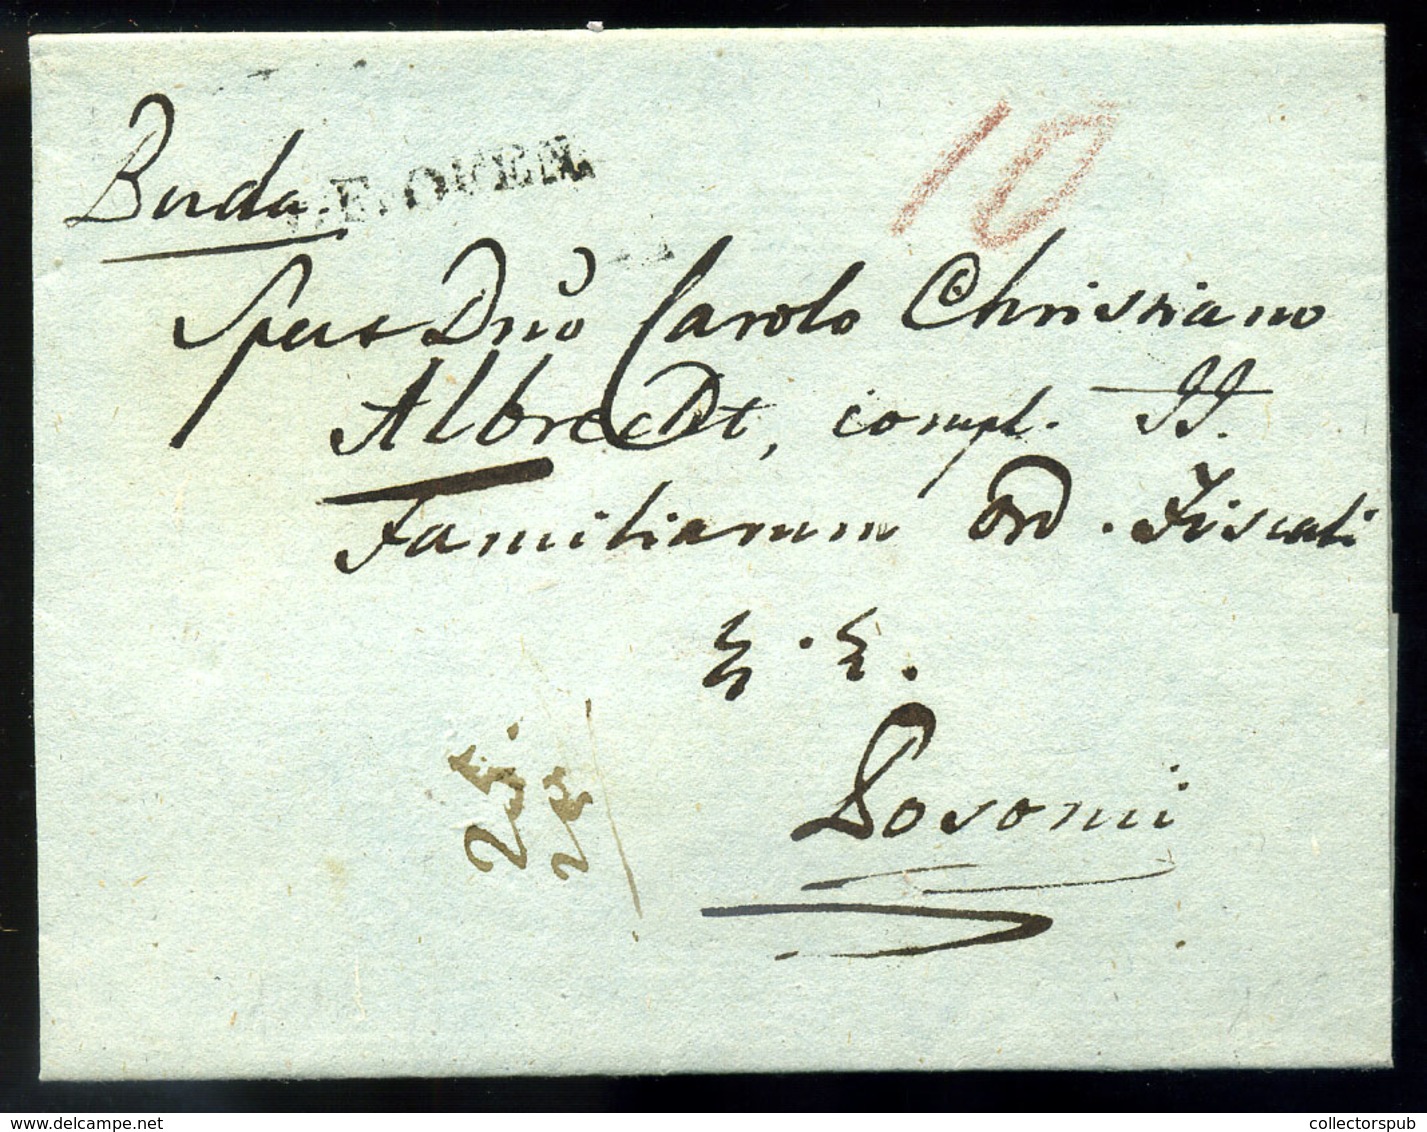 Buda.
V.E.OVEN
10
Spect Dnō Carolo Christiano
Albrecht, compl. II.
Familiarum Ord. Fiscali
Posonii
25.
collectorspub